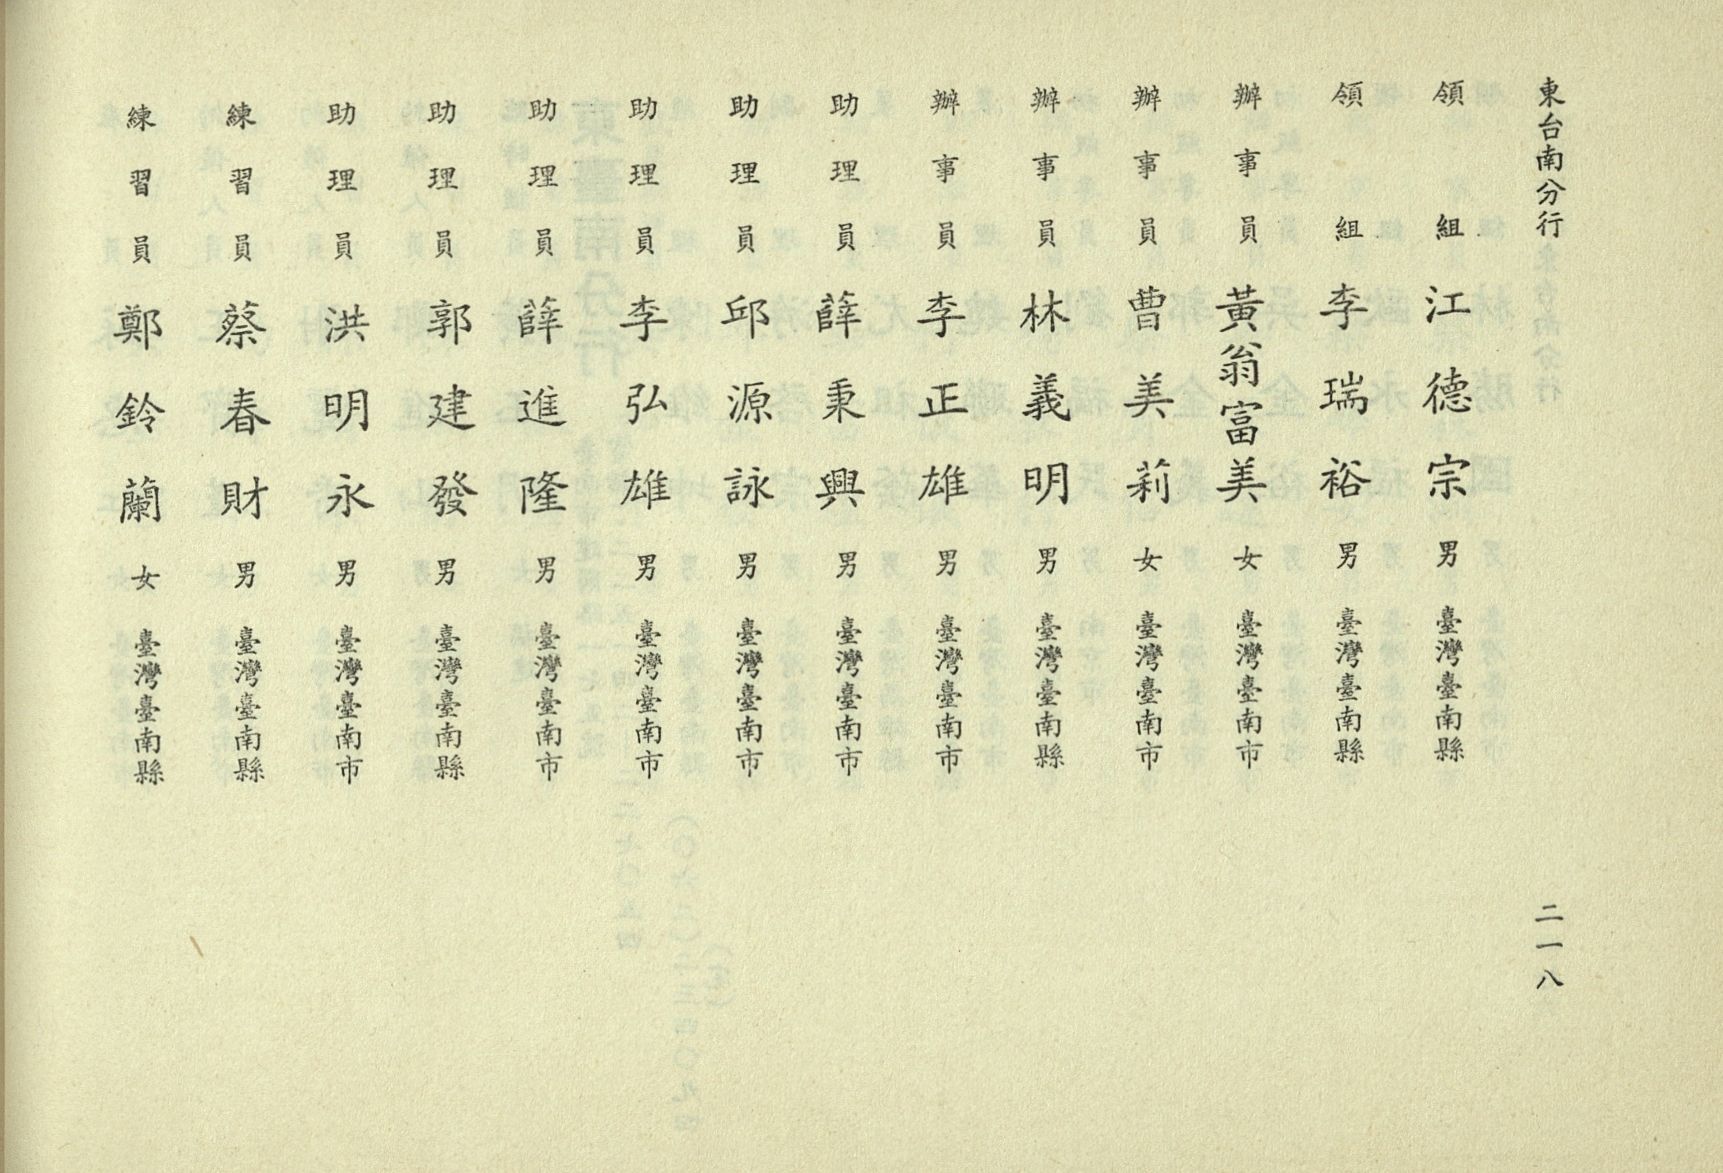 東台南分行
二一八
領組 江德宗 男 臺灣臺南縣
領組 李瑞裕 男 臺灣臺南縣
辦事員 黃翁富美 女 臺灣臺南市
辦事員 曹美莉 女 臺灣臺南市
辦事員 林義明 男 臺灣臺南縣
辦事員 李正雄 男 臺灣臺南市
助理員 薛秉興 男 臺灣臺南市
助理員 邱源詠 男 臺灣臺南市
助理員 李弘雄 男 臺灣臺南市
助理員 薛進隆 男 臺灣臺南市
助理員 郭建發 男 臺灣臺南縣
助理員 洪明永 男 臺灣臺南市
練習員 蔡春財 男 臺灣臺南縣
練習員 鄭鈴蘭 女 臺灣臺南縣